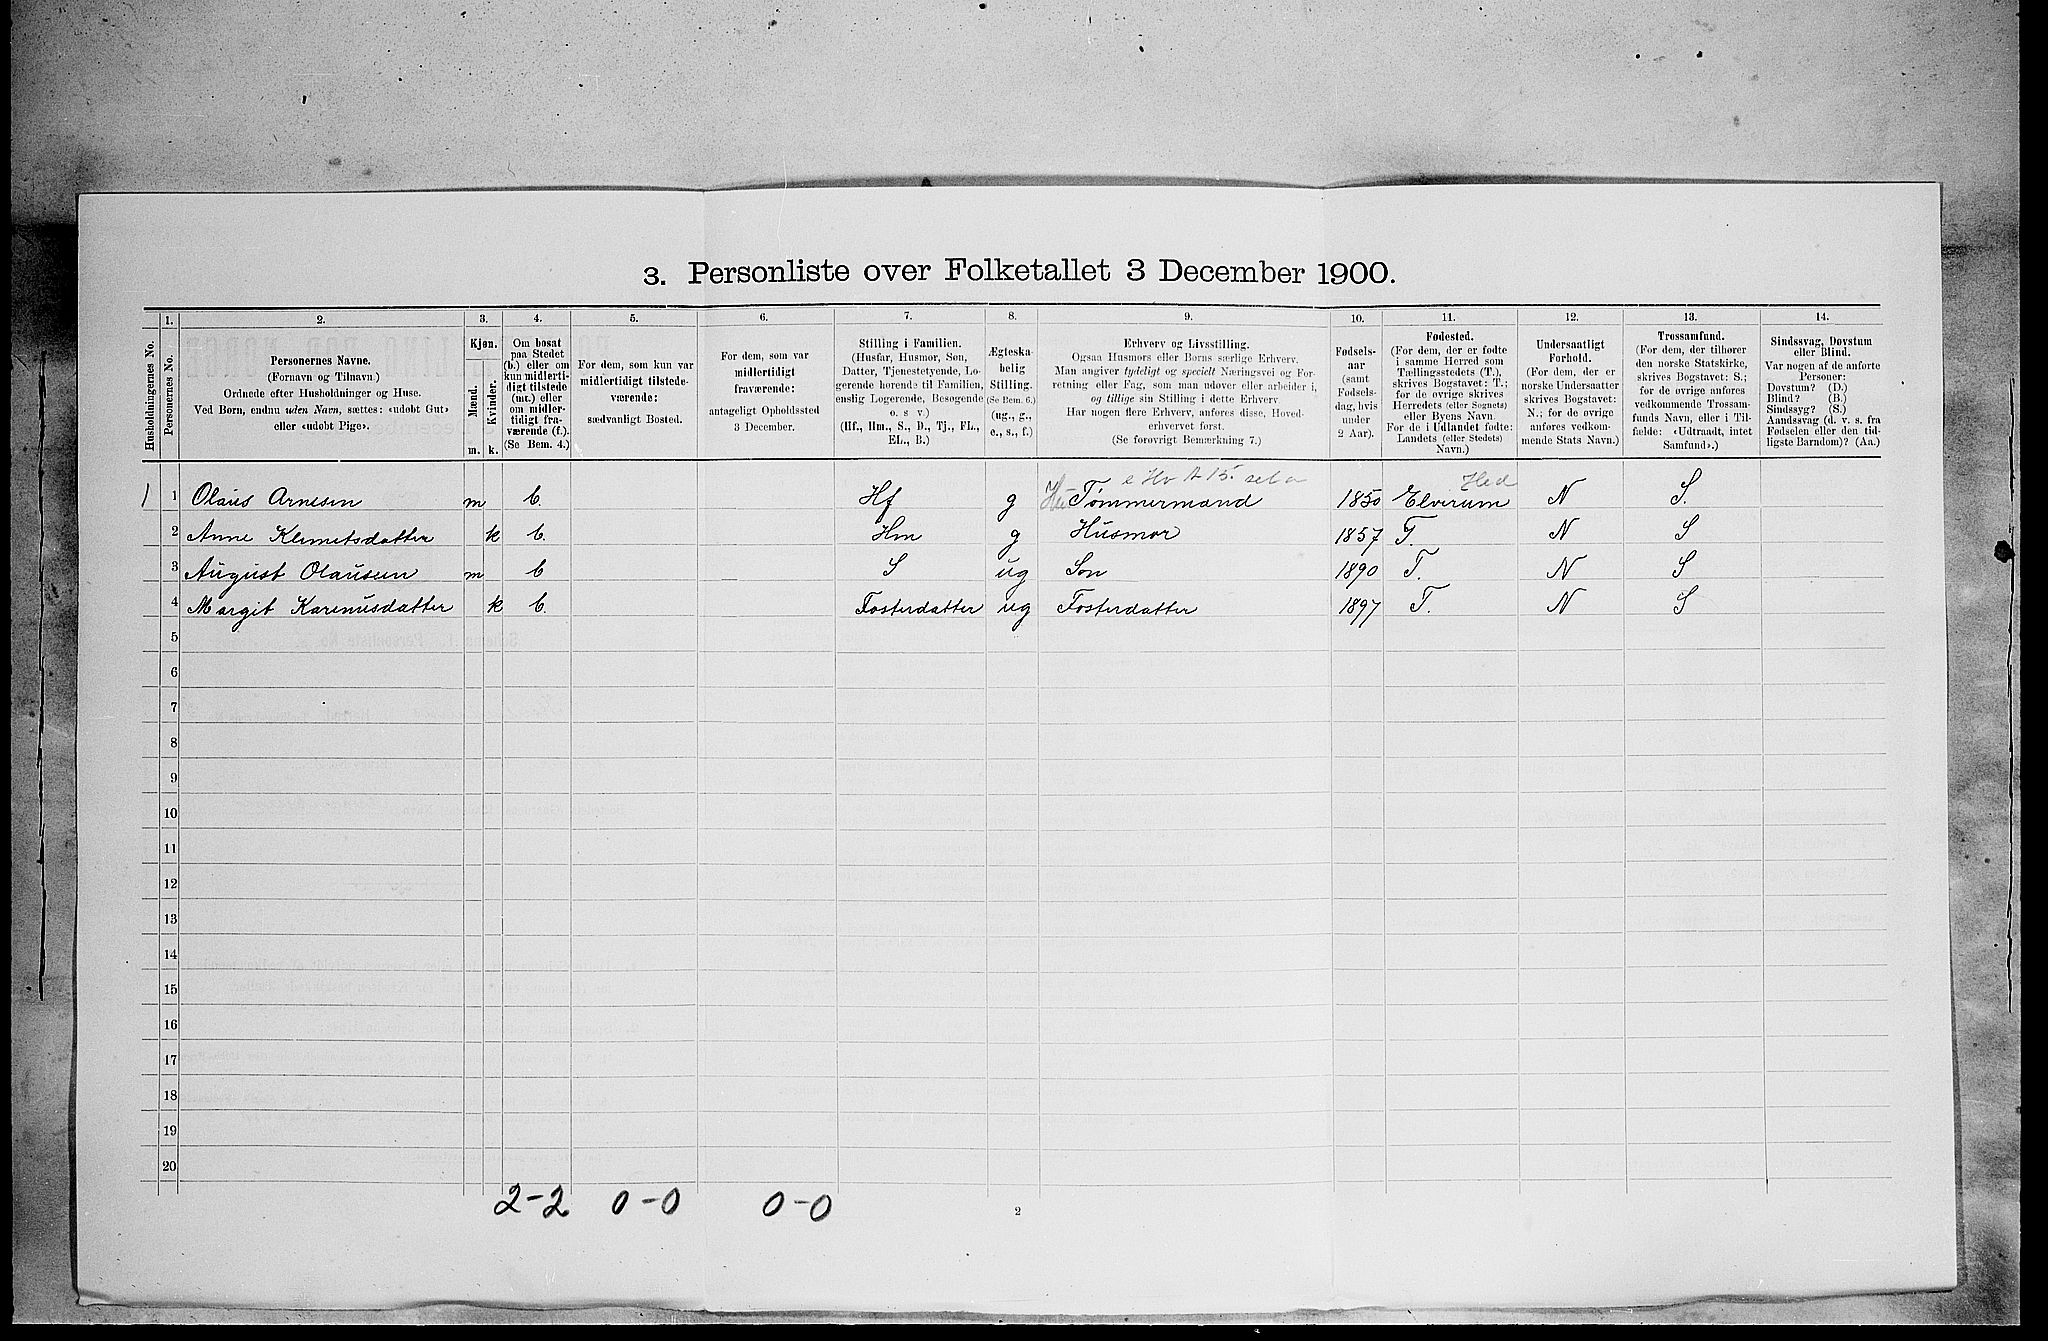 3. Personliste over Folketallet 3 December 1900.
Husholdningernes No.
1.
Personernes No.
2.
Personernes Navne.
(Fornavn og Tilnavn.)
Ordnede efter Husholdninger og Huse.
Ved Børn, endnu uden Navn, sættes: «udøbt Gut»
eller «udøbt Pige».
3.
Kjøn.
Mænd.
m.
Kvinder.
k.
4.
Om bosat
paa Stedet
(b.) eller om
kun midlerti-
digt tilstede
(mt.) eller
om midler-
tidigt fra-
værende (f.).
(Se Bem. 4.)
5.
For dem, som kun var
midlertidigt tilstede-
værende:
sædvanligt Bosted.
6.
For dem, som var
midlertidigt
fraværende:
antageligt Opholdssted
3 December.
7.
Stilling i Familien.
(Husfar, Husmor, Søn,
Datter, Tjenestetyende, Lo-
gerende hørende til Familien,
enslig Logerende, Besøgende
o. s. v.)
(Hf., Hm., S., D., Tj., FL.,
EL., B.)
8.
Ægteska-
belig
Stilling.
(Se Bem. 6.)
(ug., g.,
e., s., f.)
9.
Erhverv og Livsstilling.
Ogsaa Husmors eller Børns særlige Erhverv.
Man angiver tydeligt og specielt Næringsvei og For-
retning eller Fag, som man udøver eller arbeider i,
og tillige sin Stilling i dette Erhverv.
Har nogen flere Erhverv, anføres disse, Hoved-
erhvervet først.
(Se forøvrigt Bemærkning 7.)
10.
Fødsels-
aar
(samt
Fødsels-
dag, hvis
under
2 Aar).
11.
Fødested.
(For dem, der er fødte
i samme Herred som
Tællingsstedets (T.),
skrives Bogstavet: T.;
for de øvrige skrives
Herredets (eller Sognets)
eller Byens Navn.
For de i Udlandet fødte:
Landets (eller Stedets)
Navn.)
12.
Undersaatligt
Forhold.
(For dem, der er
norske Undersaatter
skrives Bogstavet:
N.; for de øvrige
anføres vedkom-
mende Stats Navn.)
13.
Trossamfund.
(For dem, der tilhører
den norske Statskirke,
skrives Bogstavet: S.;
for de øvrige anføres
vedkommende Trossam-
funds Navn, eller i Til-
fælde: «Udtraadt, intet
Samfund».)
14.
Sindssvag, Døvstum
eller Blind.
Var nogen af de anførte
Personer:
Døvstum? (D.)
Blind? (B.)
Sindssyg? (S.)
Aandssvag (d. v. s. fra
Fødselen eller den tid-
ligste Barndom)? (Aa.)
Hed
1 1 Olaus Arnesen m b. Hf g Tømmermand 1850 Elverum N S.
2 Anne Klemetsdatter k b. Hm g Husmor 1857 T. N S
3 August Olausen m b S ug Søn 1890 T. N S
4 Margit Karenusdatter k b. Fosterdatter ug Fosterdatter 1897 T. N S
5
6
7
8
9
10
11
12
13
14
15
16
17
18
19
20
2-2 0-0 0-0
2